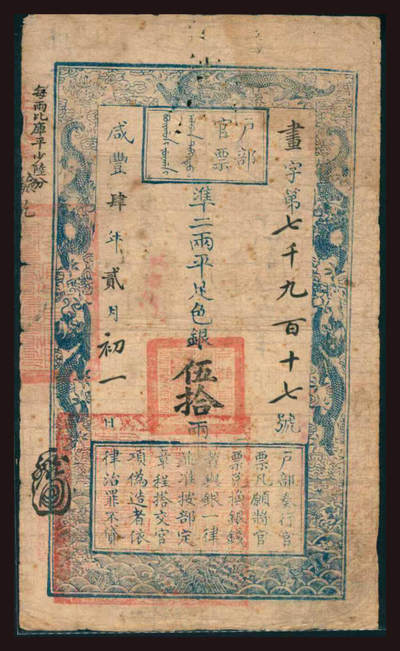 戶部
官票
畫字第七千九百十七號
準二兩平足色銀伍拾兩
咸豐肆年貳月初一日
每兩比庫平少陸分
戶部奏行官
票凡願將官
票兌換銀錢
者與銀一律
並准按部定
章程搭交官
項偽造者依
律治罪不貸